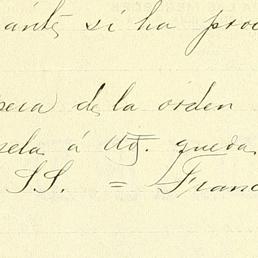 ante, si ha pro
de la orden
sela á Ud. queda
S.S. = Franc